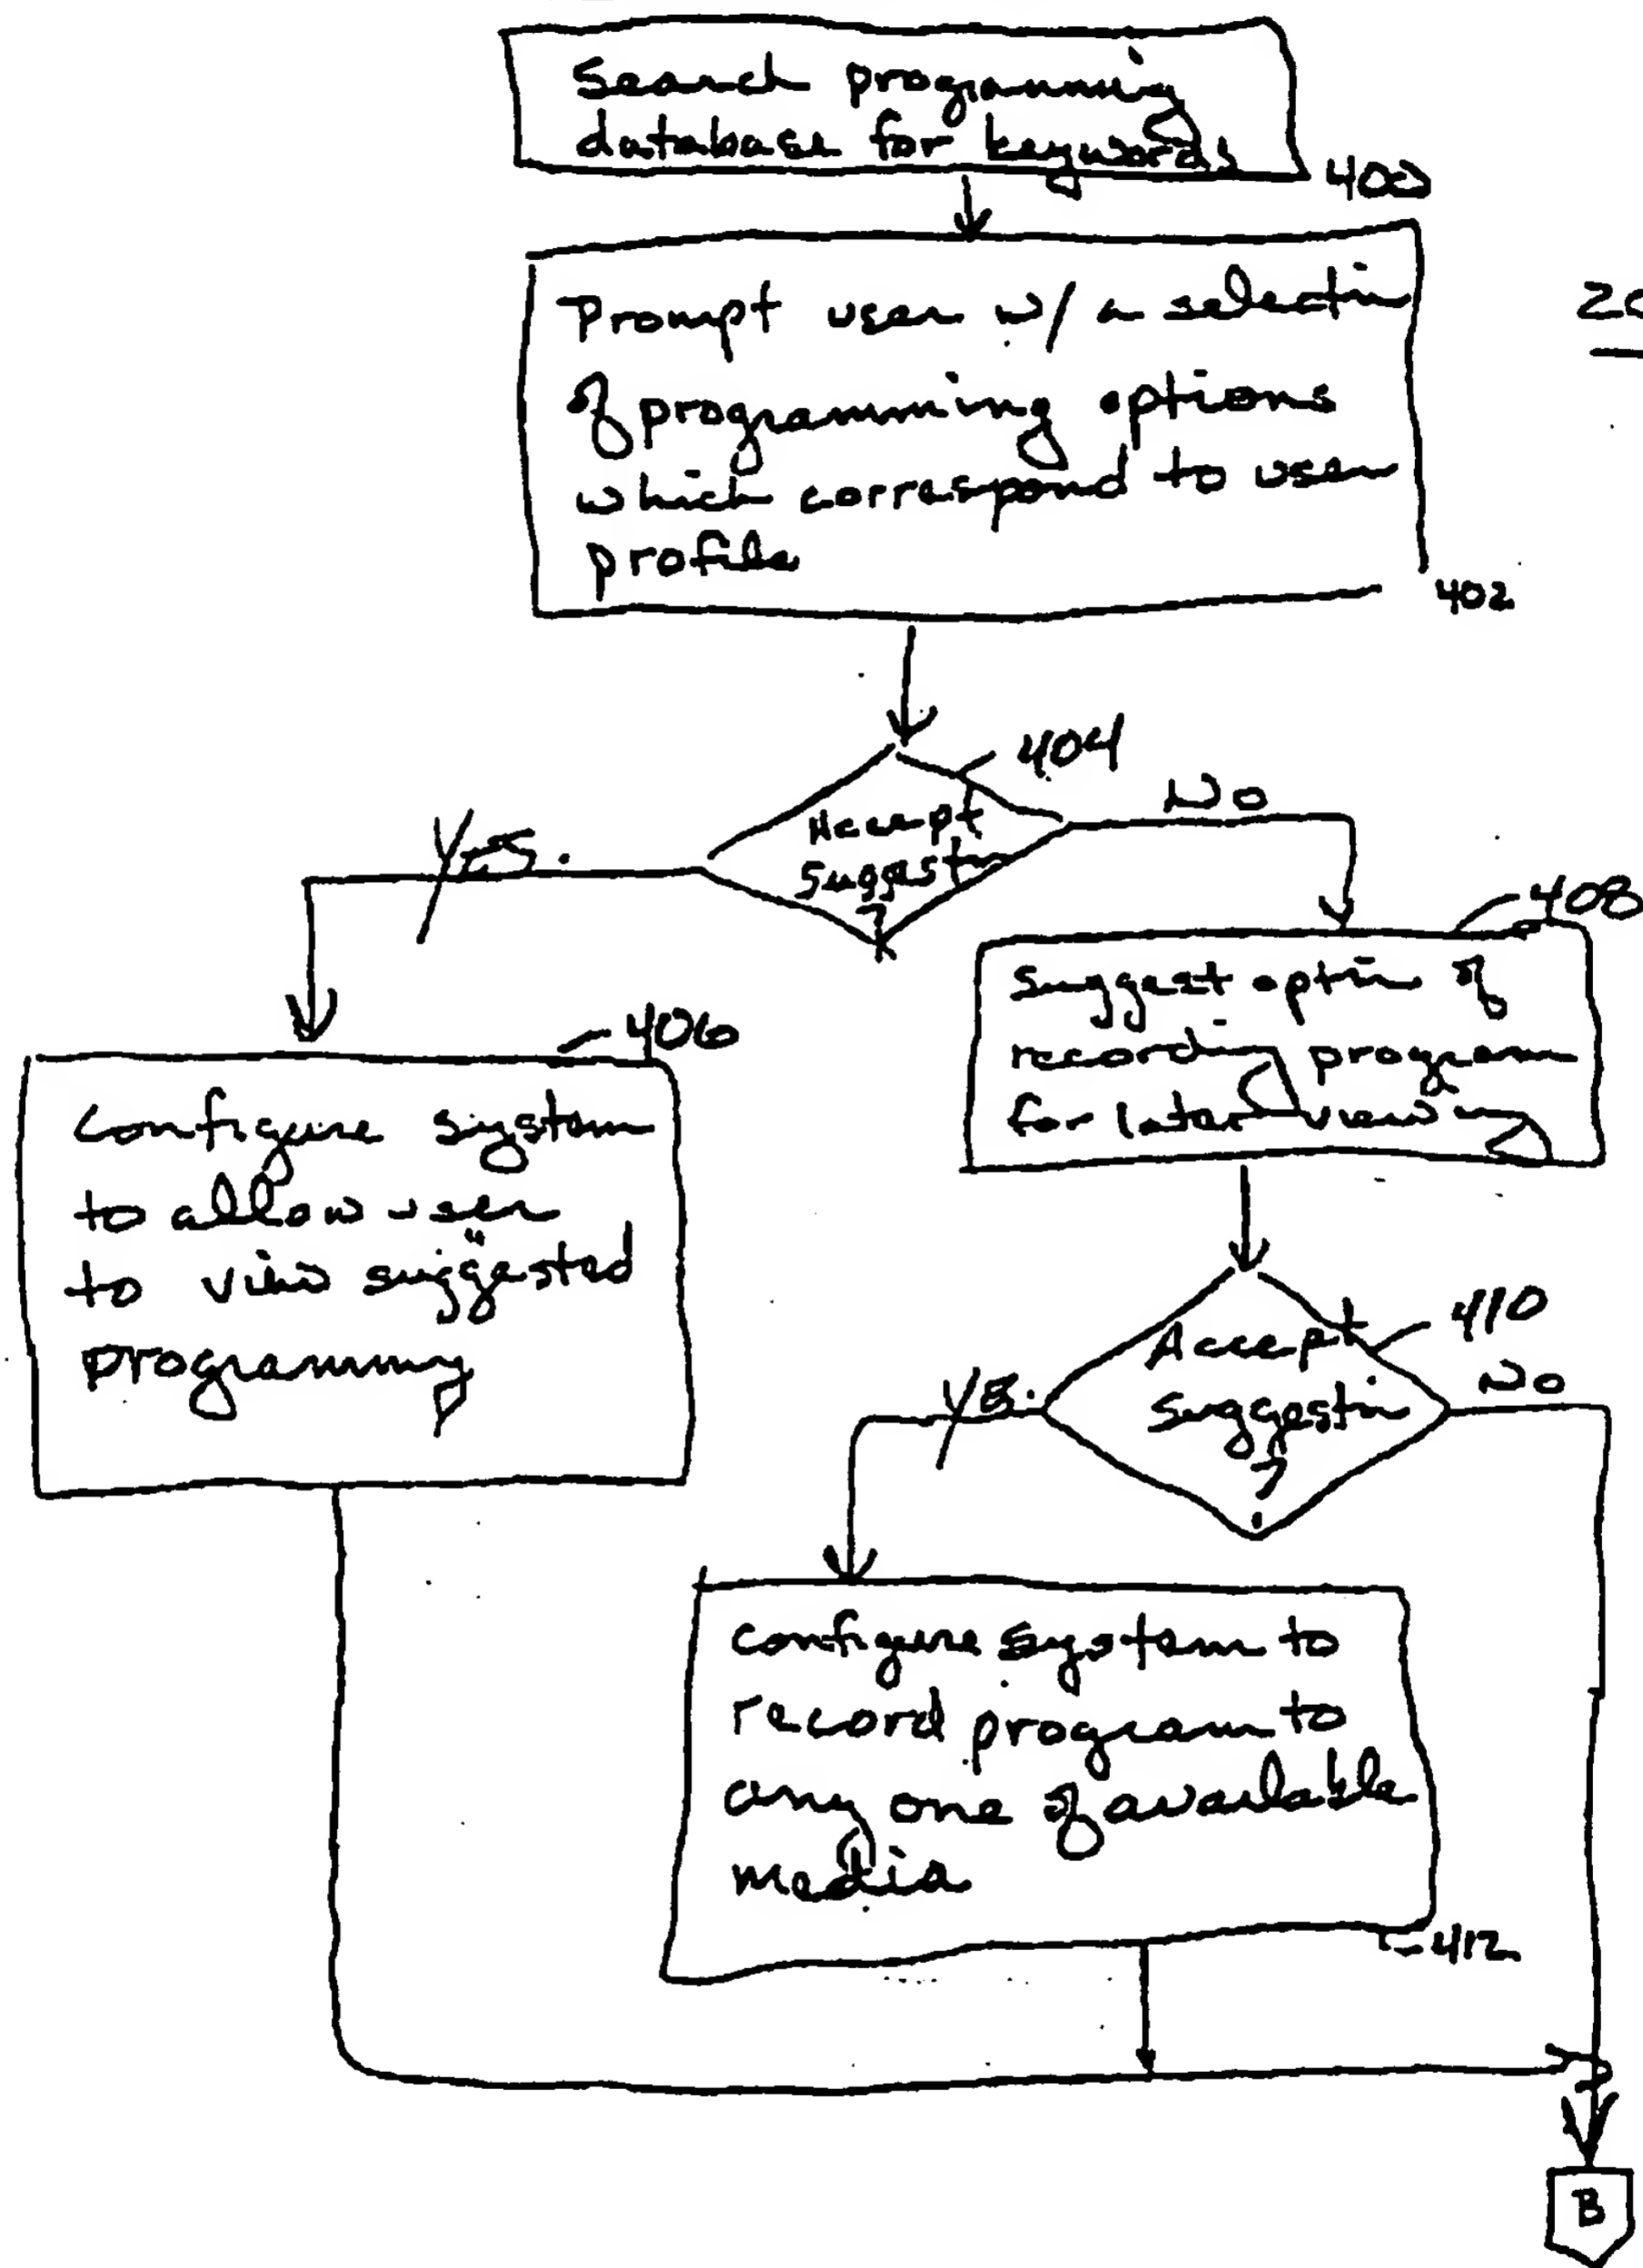 Search programming
database for keywords
400
Prompt user w/ a selection
of programming options
which correspond to user
profile
402
404
Accept
Suggestn
?
Yes.
No
408
Suggest option of
recording program
for later viewing
406
Configure system
to allow user
to view suggested
programming
410
Accept
suggestion
?
Yes.
No
Configure system to
record program to
any one of available
media
412
B